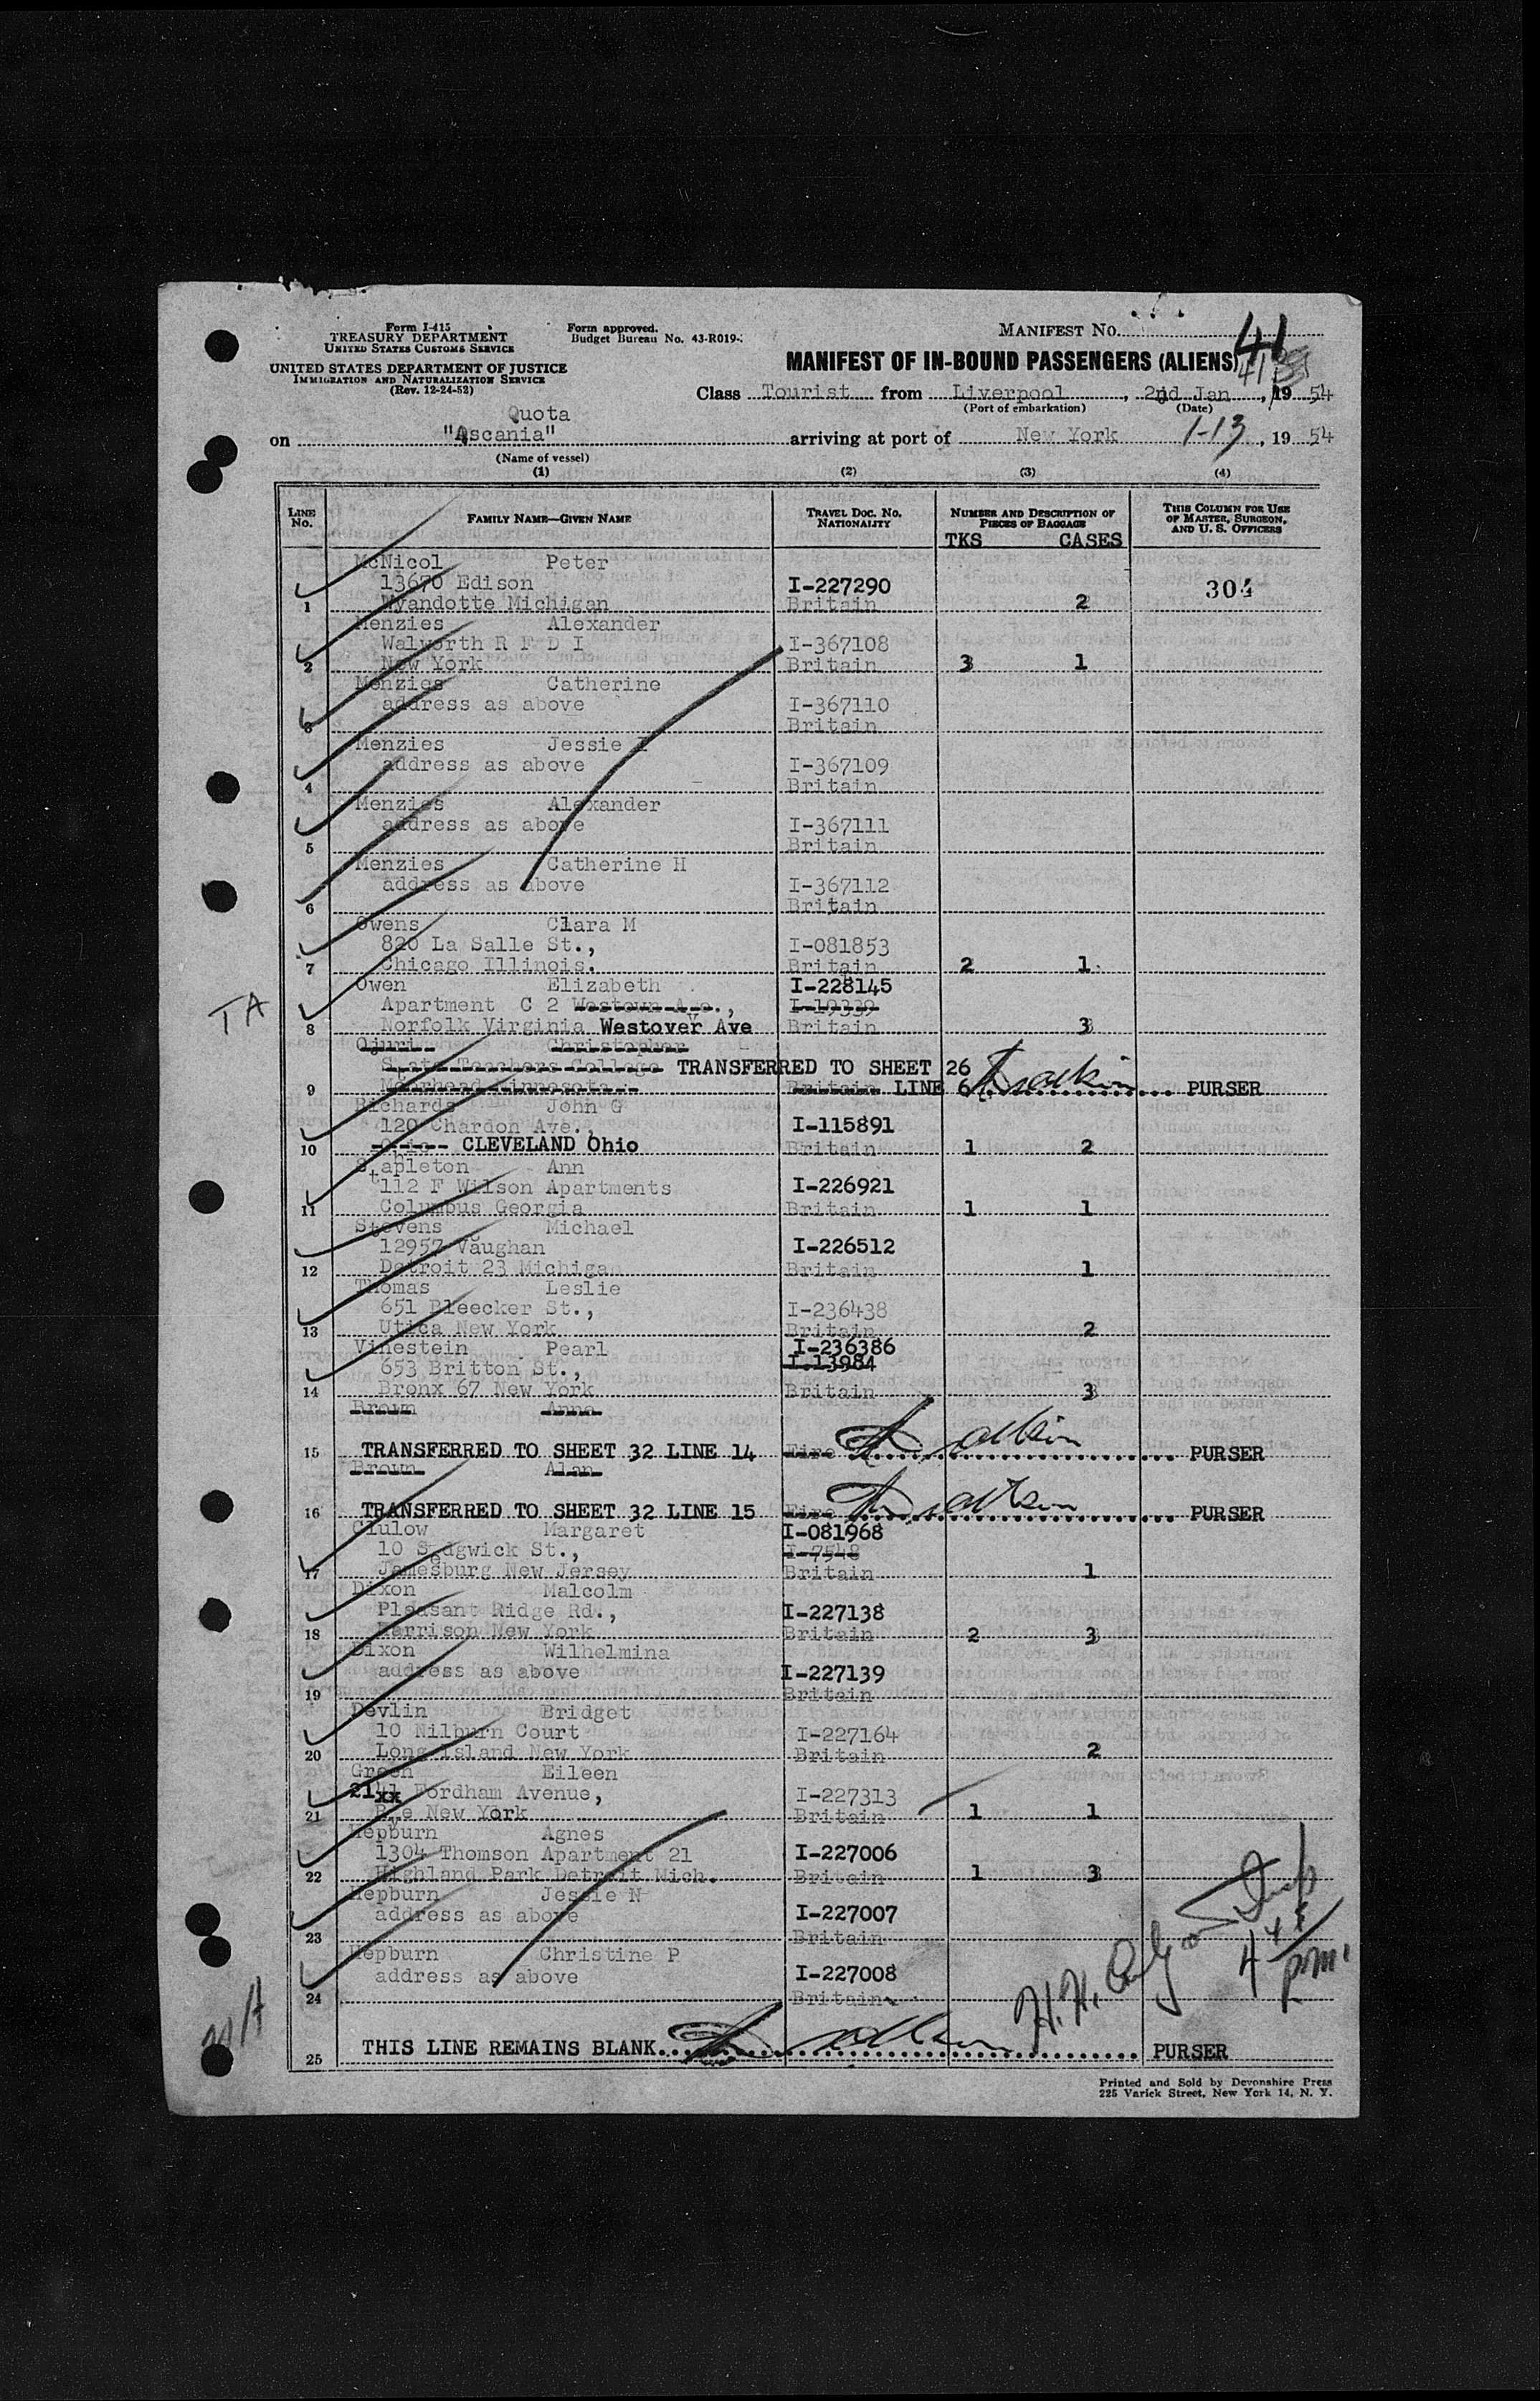 Form I-415
TREASURY DEPARTMENT
UNITED STATES CUSTOMS SERVICE
UNITED STATES DEPARTMENT OF JUSTICE
IMMIGRATION AND NATURALIZATION SERVICE
(Rev. 12-24-52)
Form approved.
Budget Bureau No. 43-R019-
MANIFEST No.
41
MANIFEST OF IN-BOUND PASSENGERS (ALIENS)
Class Tourist from Liverpool, 2nd Jan, 19 54
(Port of embarkation) (Date)
Quota
on "Ascania" arriving at port of New York 1-13, 19 54
(Name of vessel)
(1) (2) (3) (4)
LINE No. FAMILY NAME—GIVEN NAME TRAVEL DOC. No. NATIONALITY NUMBER AND DESCRIPTION OF PIECES OF BAGGAGE THIS COLUMN FOR USE OF MASTER, SURGEON, AND U. S. OFFICERS
TKS CASES
McNicol Peter
13670 Edison I-227290 304
1 Wyandotte Michigan Britain 2
Menzies Alexander
Walworth R F D I I-367108
2 New York Britain 3 1
Menzies Catherine
address as above I-367110
3 Britain
Menzies Jessie I
address as above I-367109
4 Britain
Menzies Alexander
address as above I-367111
5 Britain
Menzies Catherine H
address as above I-367112
6 Britain
Owens Clara M
820 La Salle St., I-081853
7 Chicago Illinois. Britain 2 1
Owen Elizabeth I-228145
TA Apartment C 2 Westown Ave., I-19339
8 Norfolk Virginia Westover Ave Britain 3
Ojuri Christopher
State Teachers College TRANSFERRED TO SHEET 26
9 Moorhead Minnesota Britain LINE 6 PURSER
Richards John G
120 Chardon Ave., I-115891
10 Ohio CLEVELAND Ohio Britain 1 2
Stapleton Ann
112 F Wilson Apartments I-226921
11 Columbus Georgia Britain 1 1
Stevens Michael
12957 Vaughan I-226512
12 Detroit 23 Michigan Britain 1
Thomas Leslie
651 Bleecker St., I-236438
13 Utica New York Britain 2
Vinestein Pearl I-236386
653 Britton St., I.13984
14 Bronx 67 New York Britain 3
Brown Anne
15 TRANSFERRED TO SHEET 32 LINE 14 Eire PURSER
Brown Alan
16 TRANSFERRED TO SHEET 32 LINE 15 Eire PURSER
Clulow Margaret I-081968
10 Sedgwick St., I-7548
17 Jamesburg New Jersey Britain 1
Dixon Malcolm
Pleasant Ridge Rd., I-227138
18 Harrison New York Britain 2 3
Dixon Wilhelmina
address as above I-227139
19 Britain
Devlin Bridget
10 Nilburn Court I-227164
20 Long Island New York Britain 2
Green Eileen
21xx Fordham Avenue, I-227313
21 Rye New York Britain 1 1
Hepburn Agnes
1304 Thomson Apartment 21 I-227006
22 Highland Park Detroit Mich. Britain 1 3
Hepburn Jessie N
address as above I-227007
23 Britain
Hepburn Christine P
address as above I-227008
24 Britain
4 45 pm.
25 THIS LINE REMAINS BLANK PURSER
Printed and Sold by Devonshire Press
225 Varick Street, New York 14, N. Y.